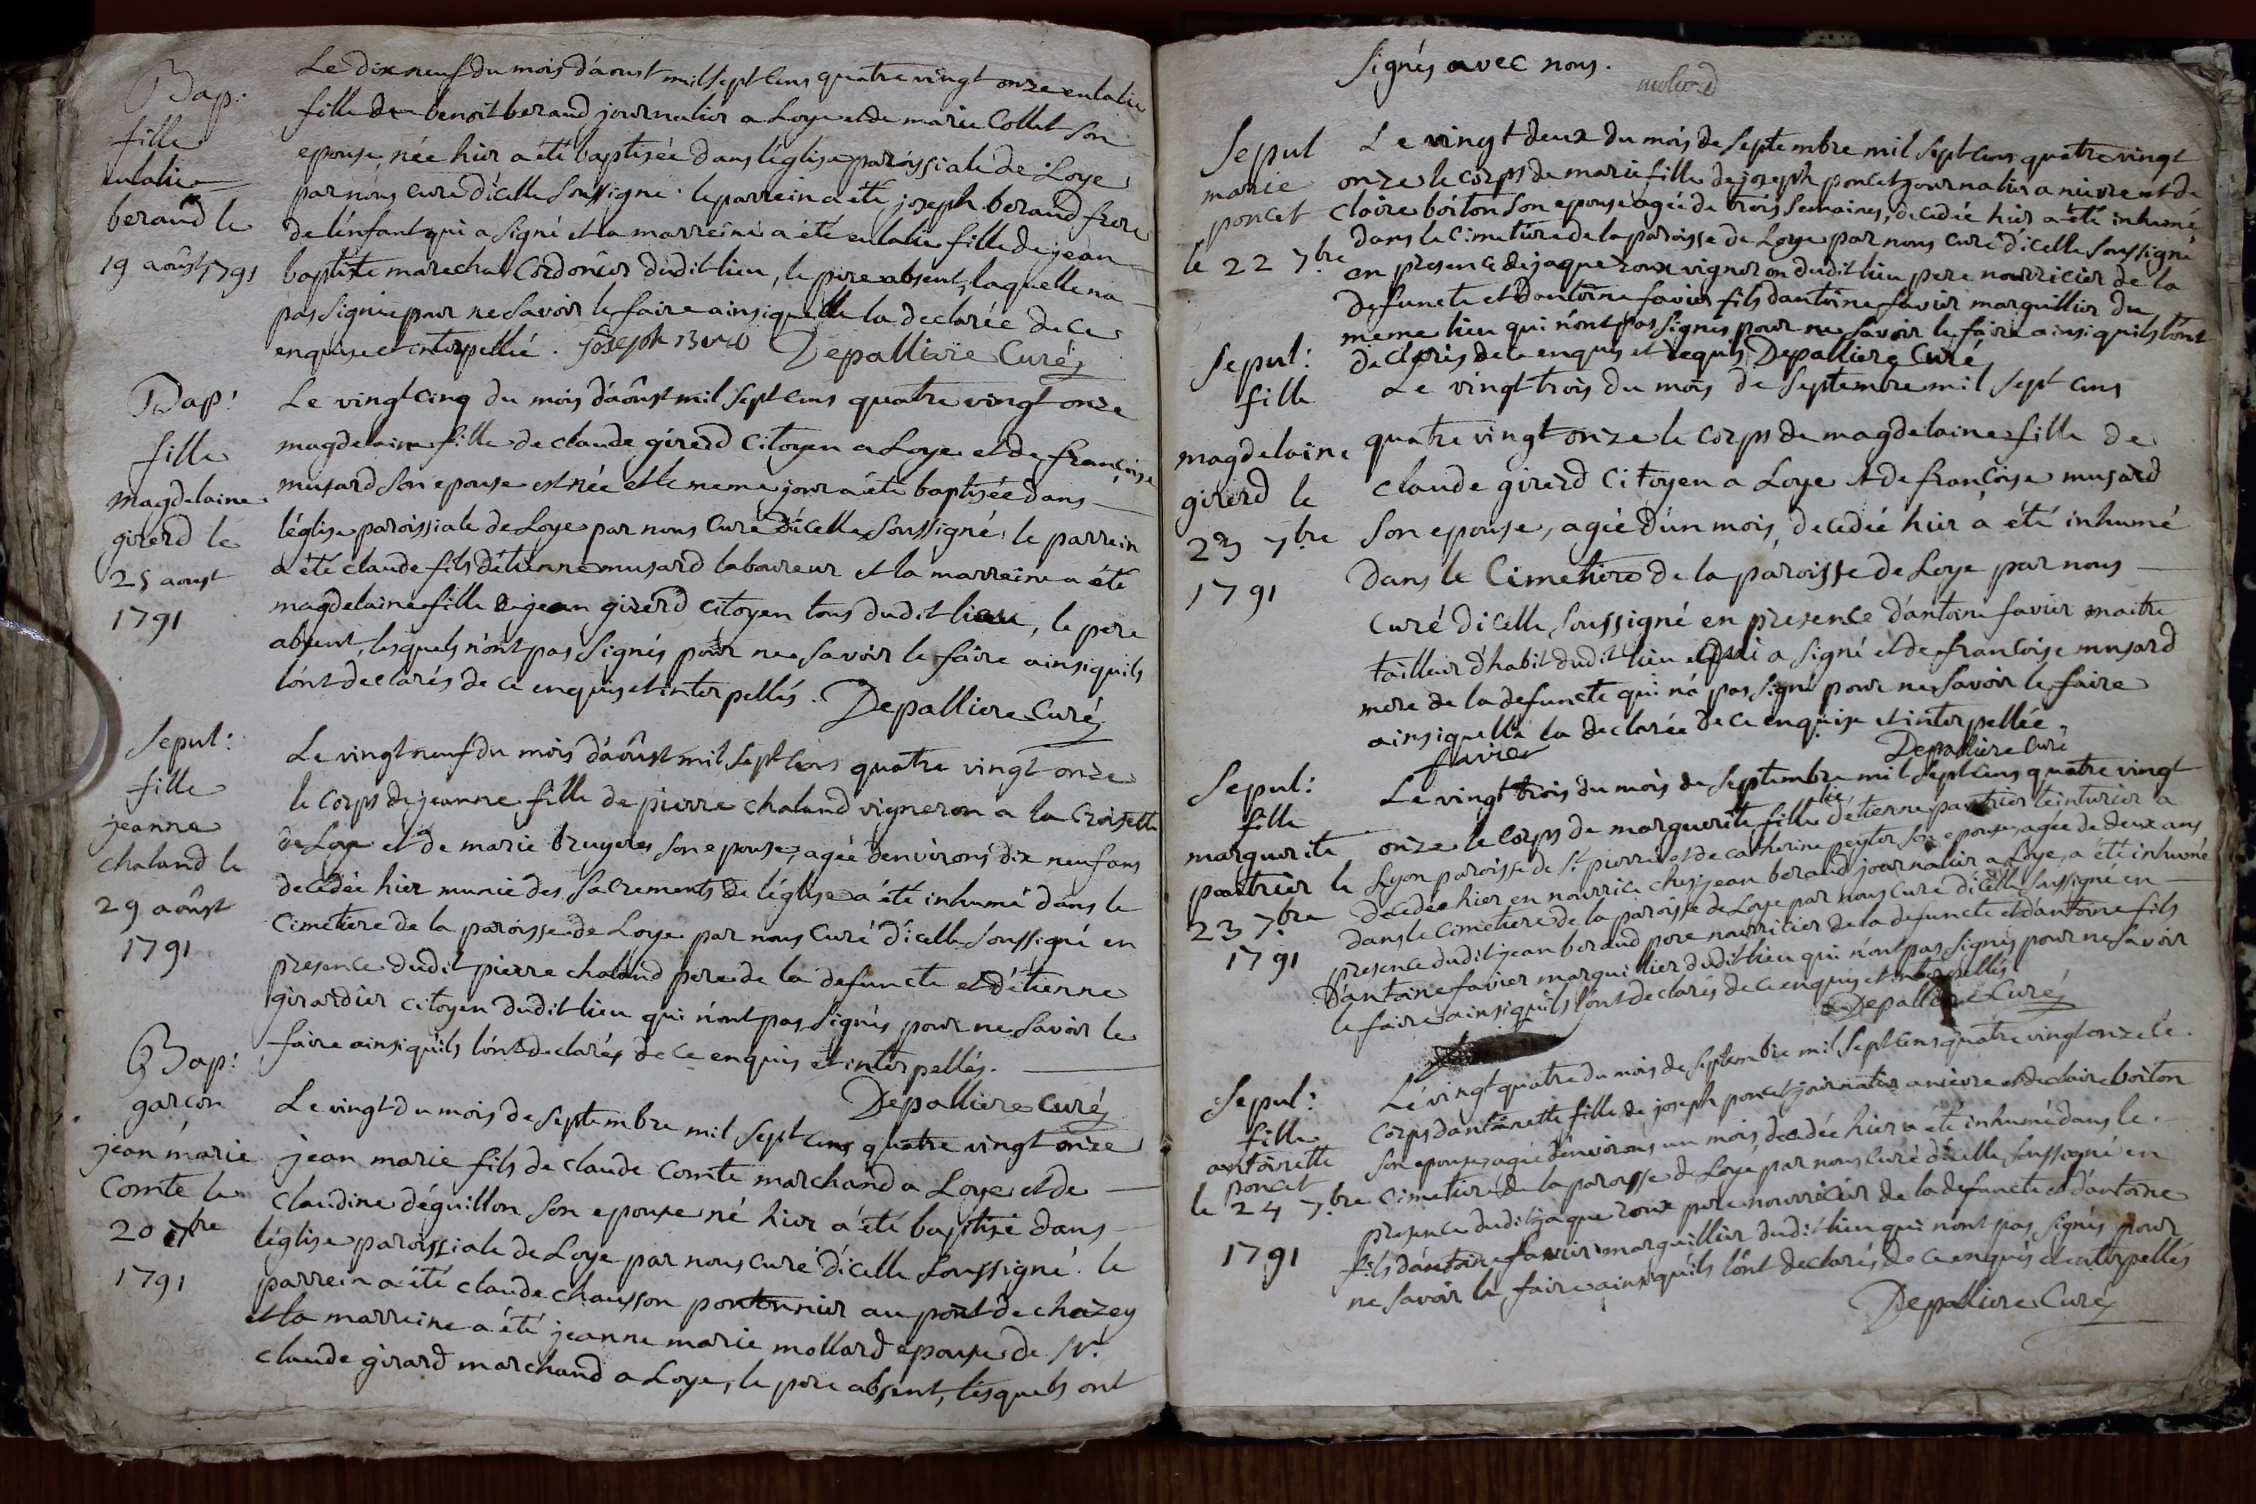 Bap:
fille
eulalie
beraud le
19 aoûst 1791
Le dix neuf du mois d'aoust mil sept cens quatre vingt onze eulalie
fille de benoit beraud journalier a Loye et de marie Collet son
epouse née hier a été baptisée dans léglise paroissiale de Loye
par nous curé d'icelle soussigné. le parrein a été joseph beraud frere
de l'enfant qui a signé et la marreine a été eulalie fille de jean
baptiste marechal Cordonier dudit lieu, le pere absent, laquelle na
pas signée pour ne savoir le faire ainsi quelle la declarée de ce
enquise et interpellée. Joseph Depalliere Curé
Bap:
fille
magdelaine
girerd le
25 aoust
1791
Le vingt cinq du mois d'aoûst mil sept cens quatre vingt onze
magdelaine fille de claude girerd citoyen a Loye et de françoise
musard son epouse est née et le meme jour a été baptisée dans
léglise paroissiale de Loye par nous Curé d'icelle soussigné. le parrein
a été claude fils d'étienne musard laboureur et la marreine a été
magdelaine fille de jean girerd citoyen tous dudit lieu, le pere
absent, lesquels n'ont pas signés pour ne savoir le faire ainsi quils
l'ont declarés de ce enquis et interpellés. Depalliere Curé
Sepul:
fille
jeanne
chaland le
29 aoûst
1791
Le vingt neuf du mois d'aoûst mil sept cens quatre vingt onze
le corps de jeanne fille de pierre chaland vigneron a la croisette
de Loye et de marie bruyeres son epouse, agée denvirons dix neuf ans
decedée hier munie des sacrements de l'église a été inhumé dans le
Cimetiere de la paroisse de Loye par nous Curé d'icelle soussigné en
presence dudit pierre chaland pere de la defuncte et d'étienne
girardier citoyen dudit lieu qui n'ont pas signés pour ne savoir le
faire ainsi quils l'ont declarés de ce enquis et interpellés.
Depalliere Curé
Bap:
garcon
jean marie
Comte le
20 7bre
1791
Le vingt du mois de septembre mil sept cens quatre vingt onze
jean marie fils de claude Comte marchand a Loye et de
claudine déguillon son epouse né hier a été baptisé dans
léglise paroissiale de Loye par nous curé d'icelle soussigné. le
parrein a été claude chausson pontonnier au pont de chazey
et la marreine a été jeanne marie mollard epouse de Sr.
claude girard marchand a Loye, le pere absent, lesquels ont
signés avec nous.
Sepul
marie
poncet
le 22 7bre
Le vingt deux du mois de septembre mil sept cens quatre vingt
onze le corps de marie fille de joseph poncet journalier a nievre et de
Claire boiton son epouse agée de trois semaines, decedée hier a été inhumé
dans le Cimetiere de la paroisse de Loye par nous Curé d'icelle soussigné
en presence de jaque roux vigneron dudit lieu pere nourricier de la
defuncte et d'antoine favier fils d'antoine favier marguillier du
meme lieu qui n'ont pas signés pour ne savoir le faire ainsi quils l'ont
declarés de ce enquis et requis Depalliere Curé
Sepul:
fille
magdelaine
girerd le
23 7bre
1791
Le vingt trois du mois de septembre mil sept cens
quatre vingt onze le corps de magdelaine fille de
Claude girerd Citoyen a Loye et de françoise musard
son epouse, agée d'un mois, decedée hier a été inhumé
dans le Cimetiere de la paroisse de Loye par nous
Curé d'icelle soussigné en presence d'antoine favier maitre
tailleur d'habit dudit lieu qui a signé et de françoise musard
mere de la defuncte qui n'a pas signé pour ne savoir le faire
ainsi quelle la declarée de ce enquise et interpellée.
favier Depalliere Curé
Sepul:
fille
marguerite
pautrier le
23 7bre
1791
Le vingt trois du mois de septembre mil sept cens quatre vingt
onze le corps de marguerite fille d'étienne pautrier teinturier a
Lyon paroisse de St. pierre et de catherine son epouse, agée de deux ans
decedée hier en nourrice chez jean beraud journalier a Loye, a été inhumé
dans le Cimetiere de la paroisse de Loye par nous Curé d'icelle soussigné en
presence dudit jean beraud pere nourricier de la defuncte et d'antoine fils
d'antoine favier marguillier dudit lieu qui n'ont pas signés pour ne savoir
le faire ainsi quils l'ont declarés de ce enquis et interpellés
Depalliere Curé
Sepul:
fille
antoinette
poncet
le 24 7bre
1791
Le vingt quatre du mois de septembre mil sept cens quatre vingt onze le
Corps d'antoinette fille de joseph poncet journalier a nievre et de claire boiton
son epouse, agée d'environs un mois, decedée hier a été inhumé dans le
cimetiere de la paroisse de Loye par nous Curé d'icelle soussigné en
presence dudit jaque roux pere nourricier de la defuncte et d'antoine
fils d'antoine favier marguillier dudit lieu qui nont pas signés pour
ne savoir le faire ainsi quils l'ont declarés de ce enquis et interpellés
Depalliere Curé